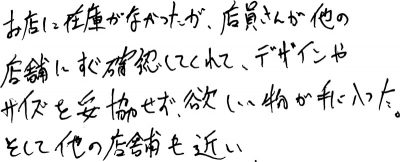 お店に在庫がなかったが、店員さんが他の
店舗にすぐ確認してくれて、デザインや
サイズを妥協せず、欲しい物が手に入った。
そして他の店舗も近い.